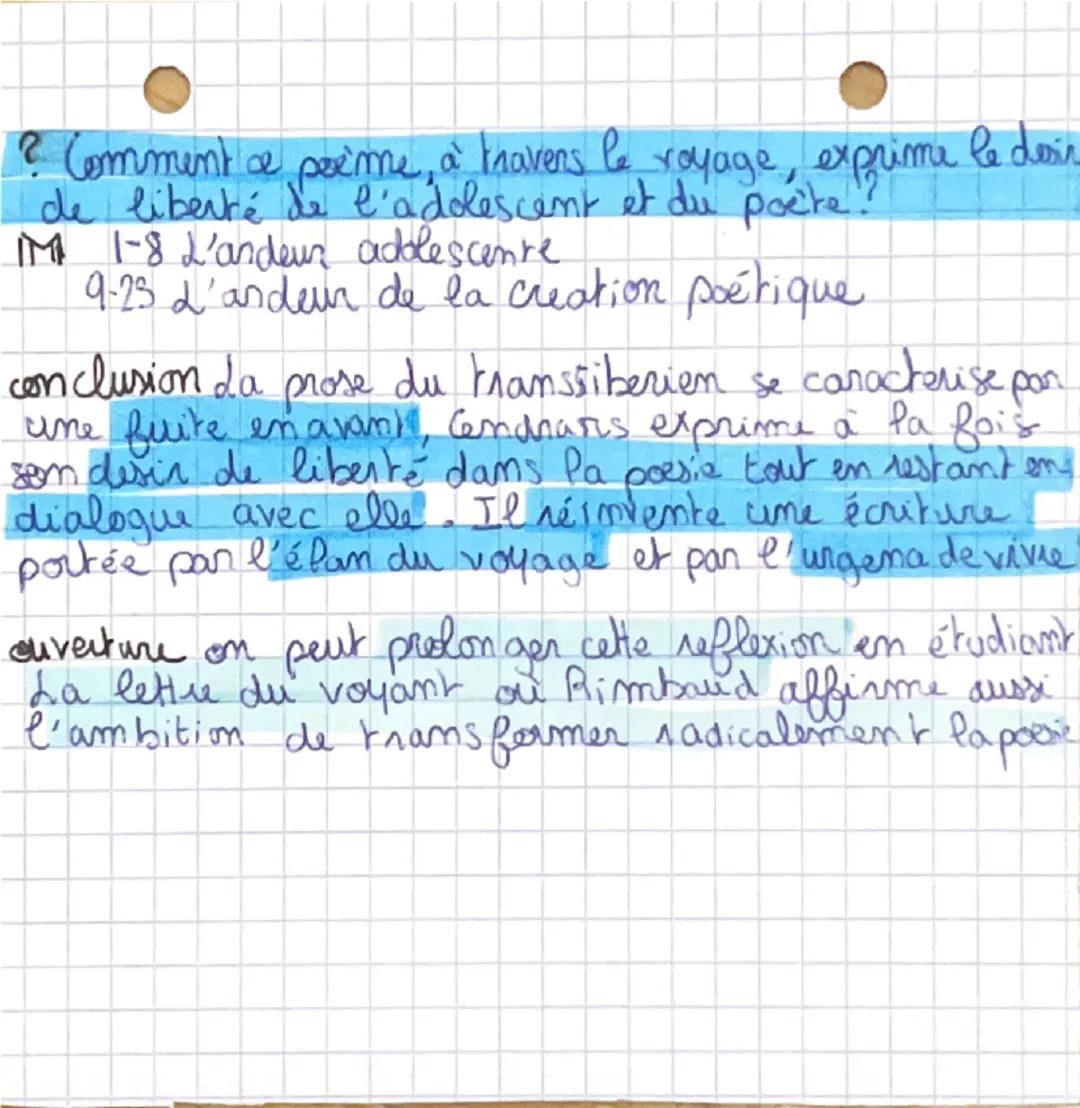 ? Comment ce poème, à travers le voyage, exprime le desir
de liberté de l'adolescent et du poète?
M 1-8 L'ardeur adolescente
9-23 L'ardeur de la creation poétique
conclusion La prose du transsiberien se caracterise par
une fuite en avant, Cendrars exprime à la fois
son desir de liberté dans la poesie tout en restant en
dialogue avec elle. Il réinvente une écriture
portée par l'élan du voyage et par l'urgence de vivre
ouverture on peut prolonger cette reflexion en étudiant
La lettre du voyant où Rimbaud affirme aussi
l'ambition de transformer radicalement la poesie